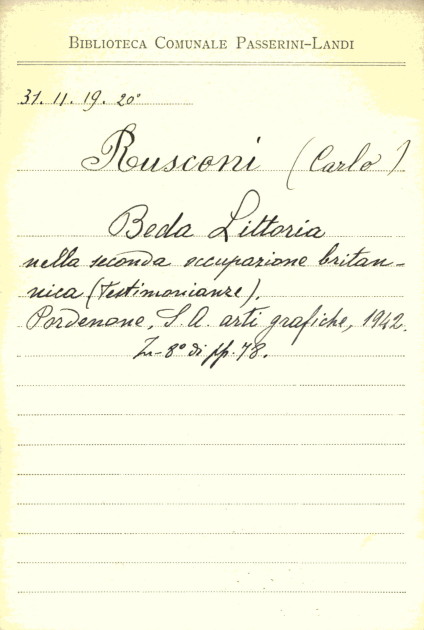 BIBLIOTECA COMUNALE PASSERINI-LANDI
31. 11. 19. 20°
Rusconi (Carlo)
Beda Littoria
nella seconda occupazione britan-
nica (Testimonianze).
Pordenone, S. A. arti grafiche, 1942.
In-8° di pp. 78.